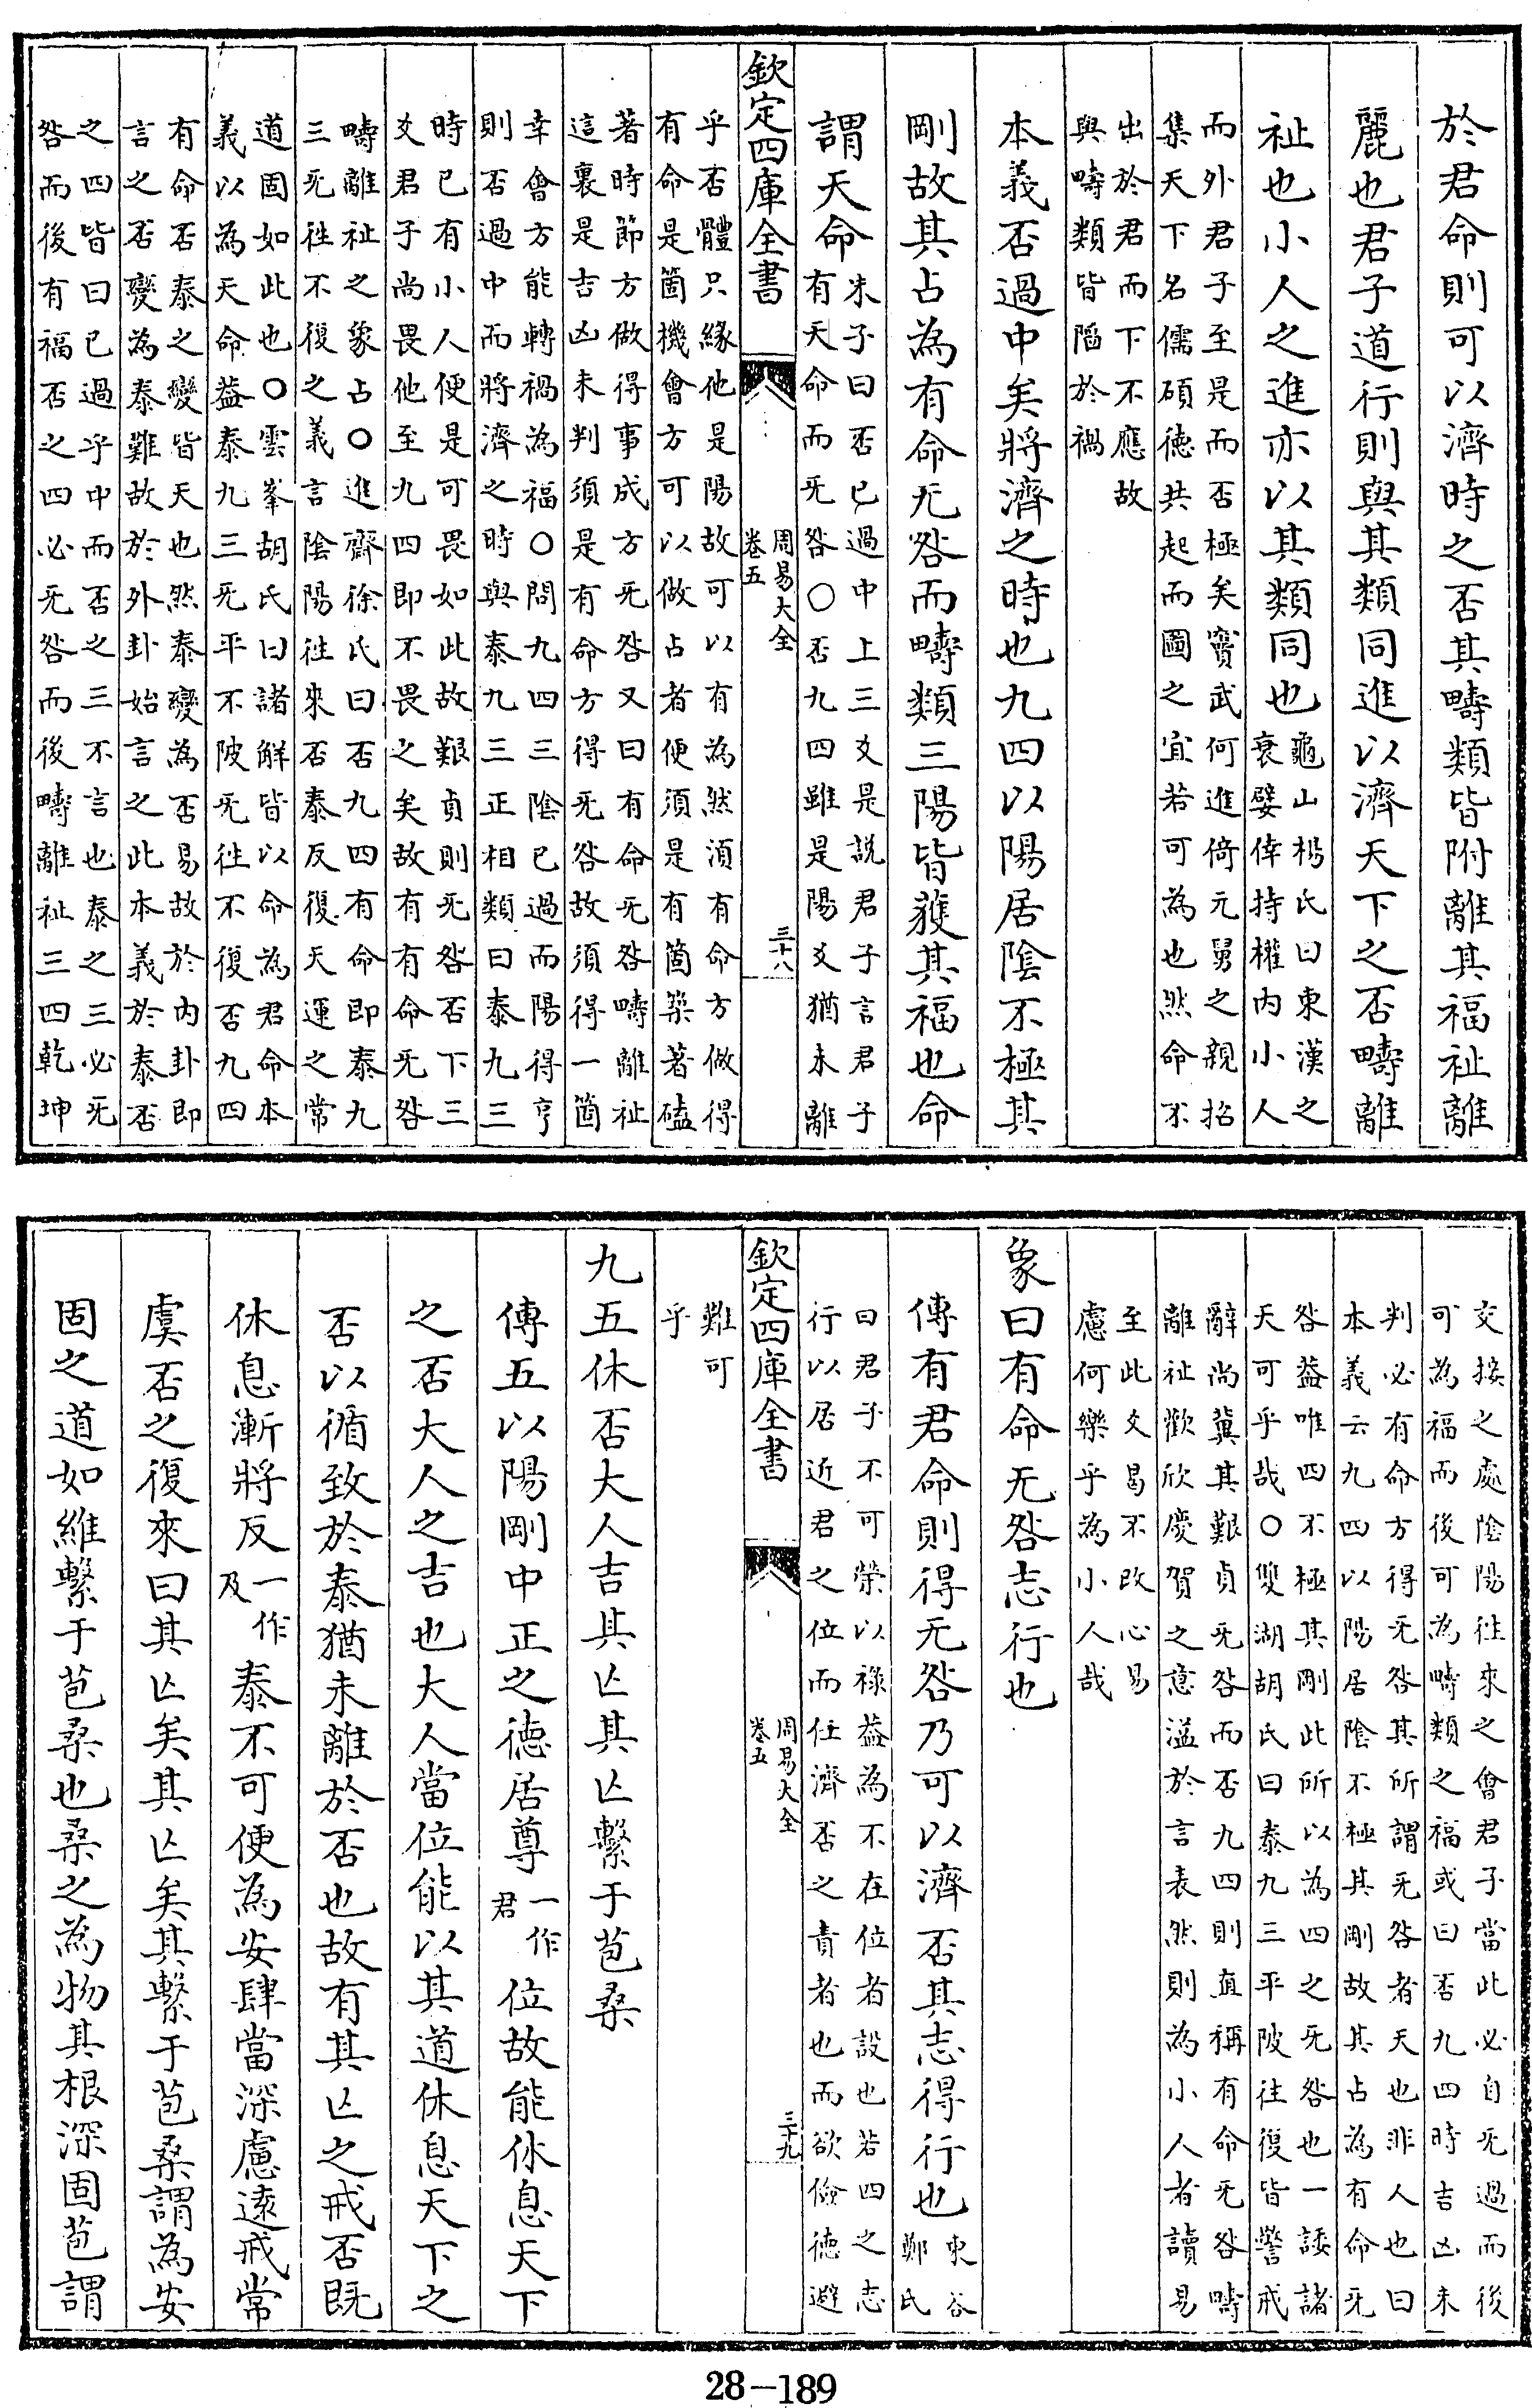 於君命則可以濟時之否其疇類皆附離其福祉離
麗也君子道行則與其類同進以濟天下之否疇離
祉也小人之進亦以其類同也龜山楊氏曰東漢之
衰嬖倖持權内小人
而外君子至是而否極矣竇武何進倚元舅之親招
集天下名儒碩德共起而圖之宜若可為也然命不
出於君而下不應故
與疇類皆陷於禍
本義否過中矣將濟之時也九四以陽居陰不極其
剛故其占為有命无咎而疇類三陽皆獲其福也命
謂天命朱子曰否已過中上三爻是説君子言君子
有天命而无咎○否九四雖是陽爻猶未離
欽定四庫全書
周易大全
卷五
三十八
乎否體只緣他是陽故可以有為然須有命方做得
有命是箇機會方可以做占者便須是有箇築著磕
著時節方做得事成方无咎又曰有命无咎疇離祉
這裏是吉凶未判須是有命方得无咎故須得一箇
幸會方能轉禍為福○問九四三陰已過而陽得亨
則否過中而將濟之時與泰九三正相類曰泰九三
時已有小人便是可畏如此故艱貞則无咎否下三
爻君子尚畏他至九四即不畏之矣故有有命无咎
疇離祉之象占○進齋徐氏曰否九四有命即泰九
三无徃不復之義言陰陽徃來否泰反復天運之常
道固如此也○雲峯胡氏曰諸解皆以命為君命本
義以為天命葢泰九三无平不陂无徃不復否九四
有命否泰之變皆天也然泰變為否易故於内卦即
言之否變為泰難故於外卦始言之此本義於泰否
之四皆曰已過乎中而否之三不言也泰之三必无
咎而後有福否之四必无咎而後疇離祉三四乾坤
交接之處陰陽徃來之會君子當此必自无過而後
可為福而後可為疇類之福或曰否九四時吉凶未
判必有命方得无咎其所謂无咎者天也非人也曰
本義云九四以陽居陰不極其剛故其占為有命无
咎葢唯四不極其剛此所以為四之无咎也一諉諸
天可乎哉○雙湖胡氏曰泰九三平陂往復皆警戒
辭尚冀其艱貞无咎而否九四則直稱有命无咎疇
離祉歡欣慶賀之意溢於言表然則為小人者讀易
至此爻曷不改心易
慮何樂乎為小人哉
象曰有命无咎志行也
傳有君命則得无咎乃可以濟否其志得行也東谷
鄭氏
曰君子不可榮以禄葢為不在位者設也若四之志
行以居近君之位而任濟否之責者也而欲儉德避
欽定四庫全書
周易大全
卷五
三十九
難可
乎
九五休否大人吉其亾其亾繫于苞桑
傳五以陽剛中正之德居尊一作
君位故能休息天下
之否大人之吉也大人當位能以其道休息天下之
否以循致於泰猶未離於否也故有其亾之戒否既
休息漸將反一作
及泰不可便為安肆當深慮遠戒常
虞否之復來曰其亾矣其亾矣其繫于苞桑謂為安
固之道如維繫于苞桑也桑之為物其根深固苞謂
28-189